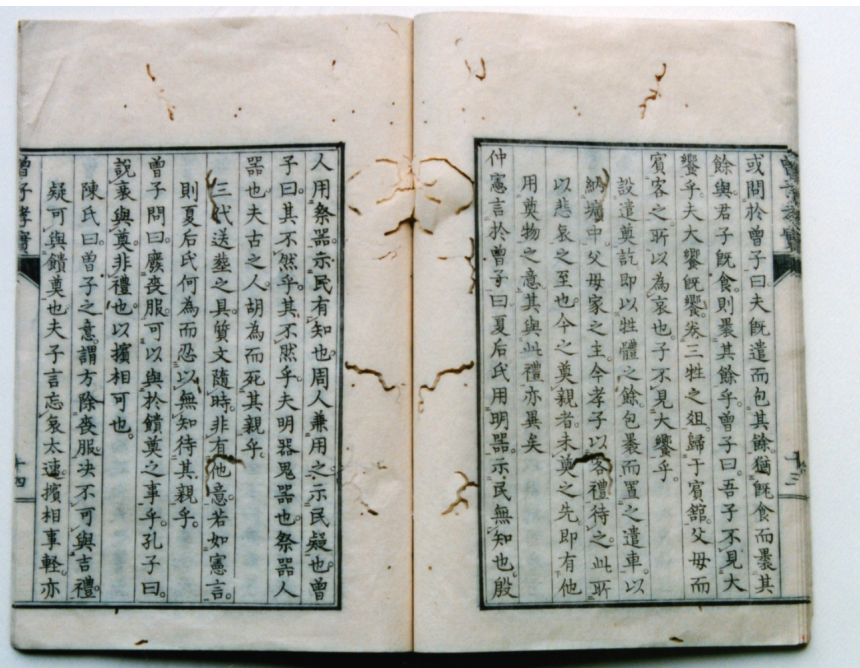 或問於曾子曰夫既遣而包其餘猶既食而裹其
餘與君子既食則裹其餘乎曾子曰吾子不見大
饗乎夫大饗既饗卷三牲之俎歸于賓舘父母而
賓客之所以為哀也子不見大饗乎
設遣奠訖即以牲體之餘包裹而置之遣車以
納壙中父母家之主今孝子以客禮待之此所
以悲哀之至也今之奠親者未奠之先即有他
用奠物之意其與此禮亦異矣
仲憲言於曾子曰夏后氏用明器示民無知也殷
十三
人用祭器示民有知也周人兼用之示民疑也曾
子曰其不然乎其不然乎夫明器鬼器也祭器人
器也夫古之人胡為而死其親乎
三代送塟之具質文隨時非有他意若如憲言
則夏后氏何為而忍以無知待其親乎
曾子問曰廢丧服可以與於饋奠之事乎孔子曰
說衰與奠非禮也以擯相可也
陳氏曰曾子之意謂方除丧服决不可與吉禮
疑可與饋奠也夫子言忘哀太速擯相事軽亦
曾子孝實
十四